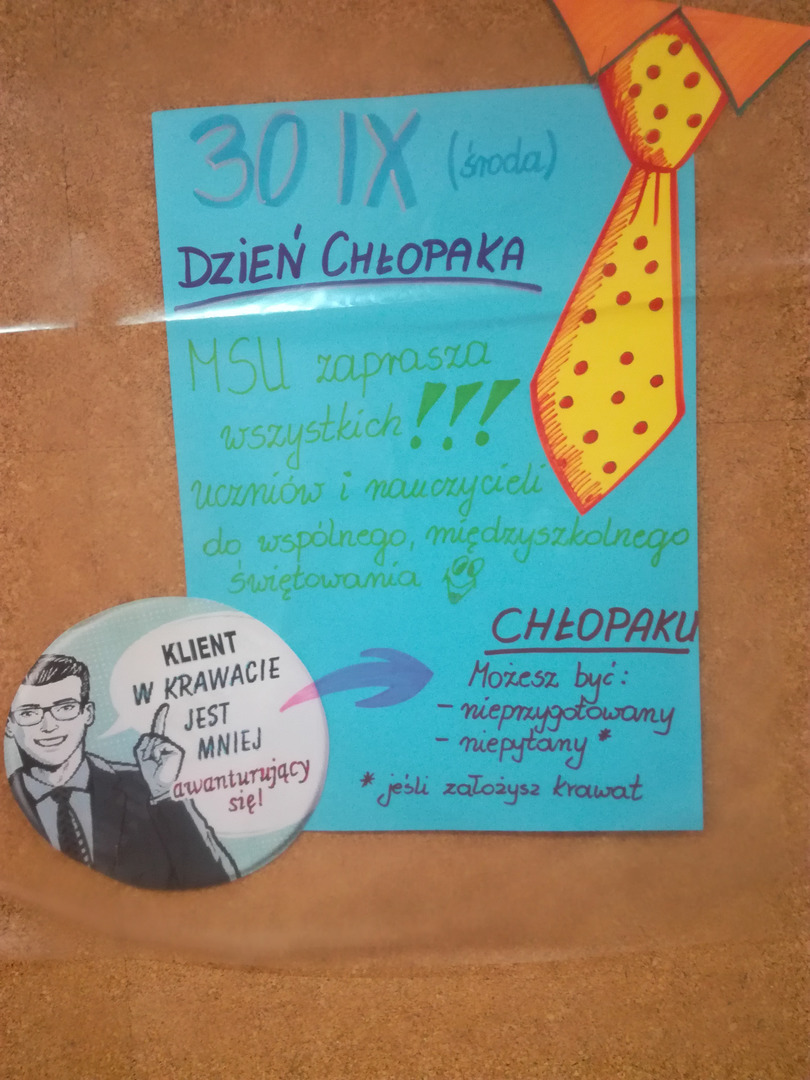 30 IX (środa)
DZIEŃ CHŁOPAKA
MSU zaprasza
wszystkich!!!
uczniów i nauczycieli
do wspólnego, międzyszkolnego
świętowania
CHŁOPAKU
Możesz być:
- nieprzygotowany
- niepytany *
* jeśli założysz krawat
KLIENT
W KRAWACIE
JEST
MNIEJ
awanturujący
się!